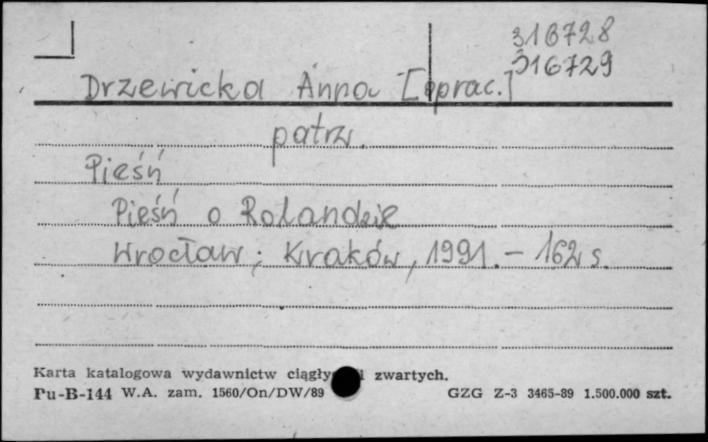 316728
316729
Drzewicka Anna [oprac.]
patrz.
Pieśń
Pieśń o Rolandzie
Wrocław ; Kraków, 1991. – 162 s.
Karta katalogowa wydawnictw ciągły i zwartych.
Pu-B-144 W.A. zam. 1560/On/DW/89 GZG Z-3 3465-89 1.500.000 szt.